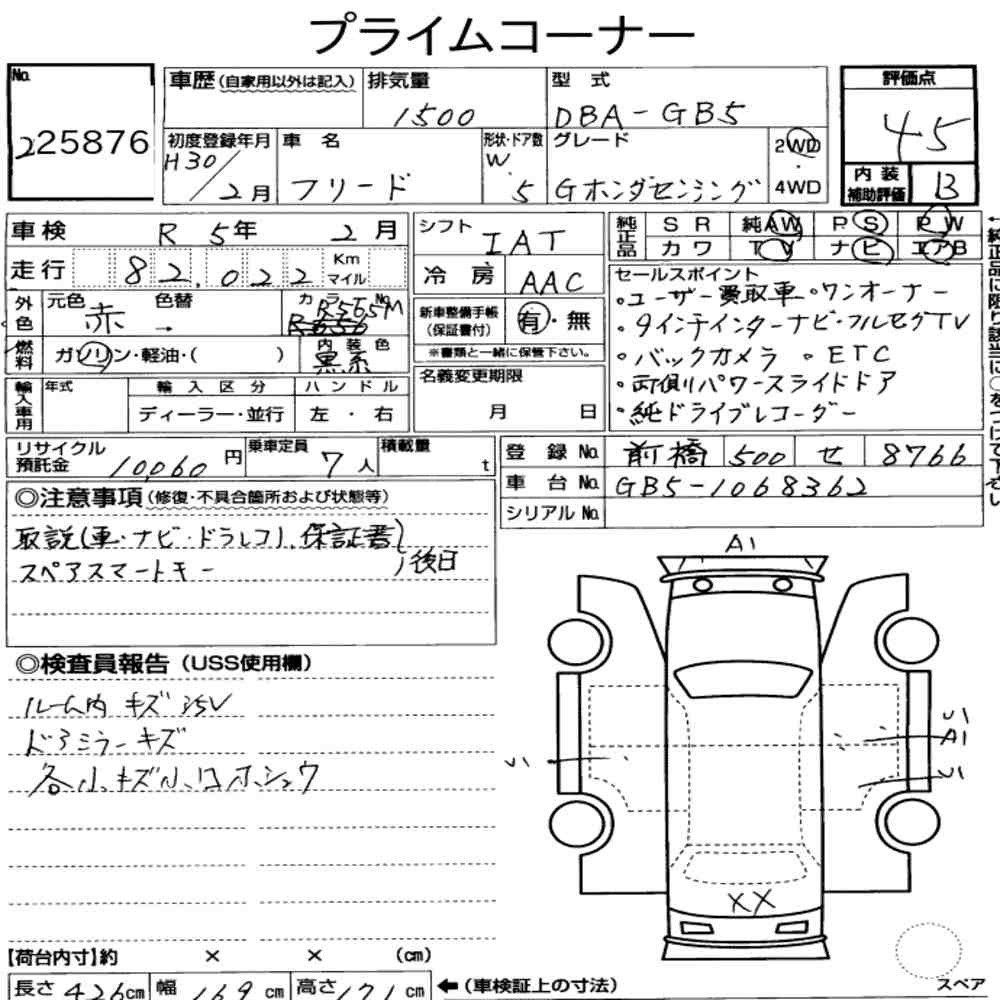 プライムコーナー
No.
225876
車歴(自家用以外は記入) 排気量 型式
1500 DBA-GB5
初度登録年月 車名 形状・ドア数 グレード 2WD・4WD
H30/2月 フリード W.5 Gホンダセンシング
評価点
45
内装補助評価 B
車検 R5年2月
走行 82,022 Km マイル
シフト IAT
冷房 AAC
純正品 SR 純AW PS PW
カワ TV ナビ エアB
外色 元色 赤 色替 → カラーNo. R565M
燃料 ガソリン・軽油・( ) 内装色 黒系
新車整備手帳(保証書付) 有・無
※書類と一緒に保管下さい。
輸入車用 年式 輸入区分 ハンドル
ディーラー・並行 左・右
名義変更期限
月 日
セールスポイント
・ユーザー買取車・ワンオーナー
・9インチインターナビ・フルセグTV
・バックカメラ・ETC
・両側パワースライドドア
・純ドライブレコーダー
リサイクル預託金 10060円 乗車定員 7人 積載量 t
登録No. 前橋 500 せ 8766
車台No. GB5-1068362
シリアルNo.
◎注意事項(修復・不具合箇所および状態等)
取説(車・ナビ・ドラレコ)、保証書
スペアスマートキー 後日
◎検査員報告(USS使用欄)
ルーム内 キズ
ドアミラーキズ
各小キズ小凹ホシュウ
A1
U1
A1
U1
U1
XX
【荷台内寸】約 × × (cm)
長さ 426cm 幅 169cm 高さ 171cm ←(車検証上の寸法)
スペア